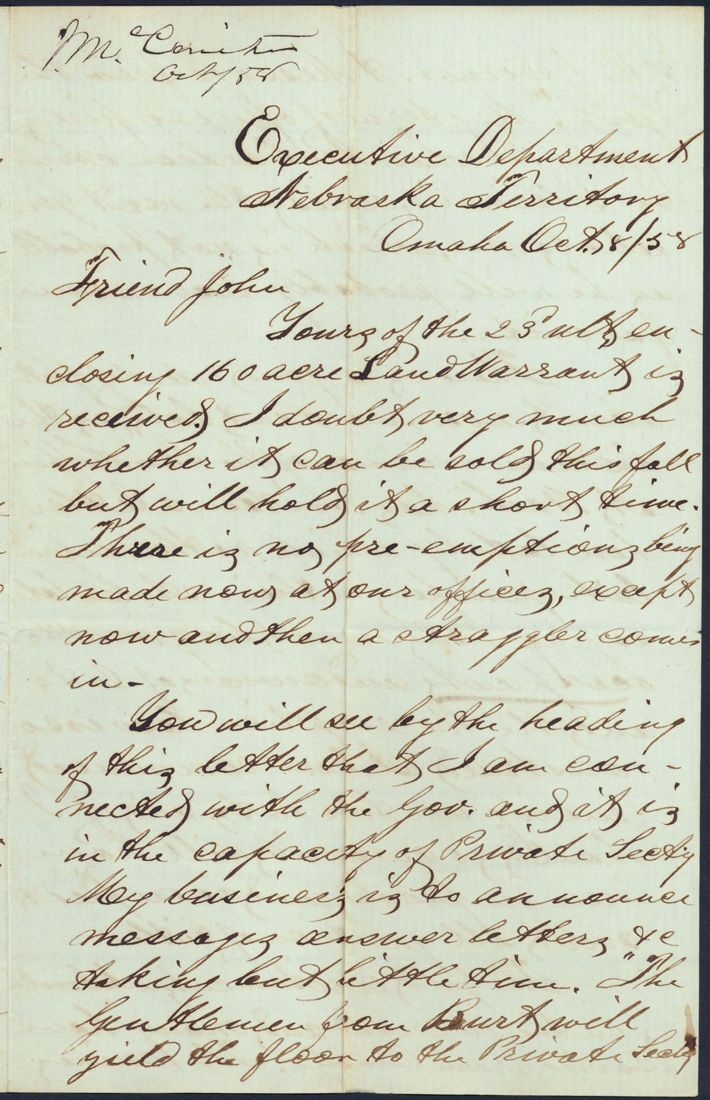 Oct/58
Executive Department
Nebraska Territory
Omaha Oct. 8/58
Friend John
Yours of the 23d ult, en-
closing 160 acre Land Warrant is
received. I doubt very much
whether it can be sold this fall
but will hold it a short time.
There is no pre-emptions being
made now at our offices, except
now and then a straggler comes
in-
You will see by the heading
of this letter that I am con-
nected with the Gov. and it is
in the capacity of Private Secty
My business is to announce
messages answer letters &c
taking but little time. "The
Gentlemen from Burt will
yield the floor to the Private Secty